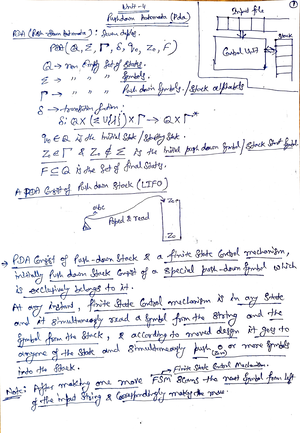 Unit-4
Pushdown Automata (Pda)
Input file
Control Unit
PDA (Push down Automata): Seven tuples.
PDA (Q, Σ, Γ, δ, q₀, Z₀, F)
Q → non empty Set of States.
Σ → " " " Symbols.
Γ → " " " Push down Symbols / Stack alphabets
δ → transition function:
δ: Q X (Σ U {λ}) X Γ → Q X Γ*
q₀ ∈ Q is the Initial State / Starting State.
Z₀ ∈ Γ & Z₀ ∉ Σ is the Initial push down Symbol / Stack Start Symbol
F ⊆ Q is the Set of final States.
A PDA Consist of Push down Stack (LIFO)
abc
Taped & read
Z₀
→ PDA Consist of Push-down Stack & a finite State Control mechanism,
initially Push down Stack Consist of a Special push-down Symbol which
is exclusively belongs to it.
At any instant, finite State Control mechanism is in any State
and it simultaneously read a Symbol from the String and the
Symbol from the Stack, & according to moved design it goes to
anyone of the State and Simultaneously push 0 or more Symbols
into the Stack.
Finite State Control Mechanism.
Note: After making one move FSM Scans the next Symbol from left
of the input String & Correspondingly makes the move.